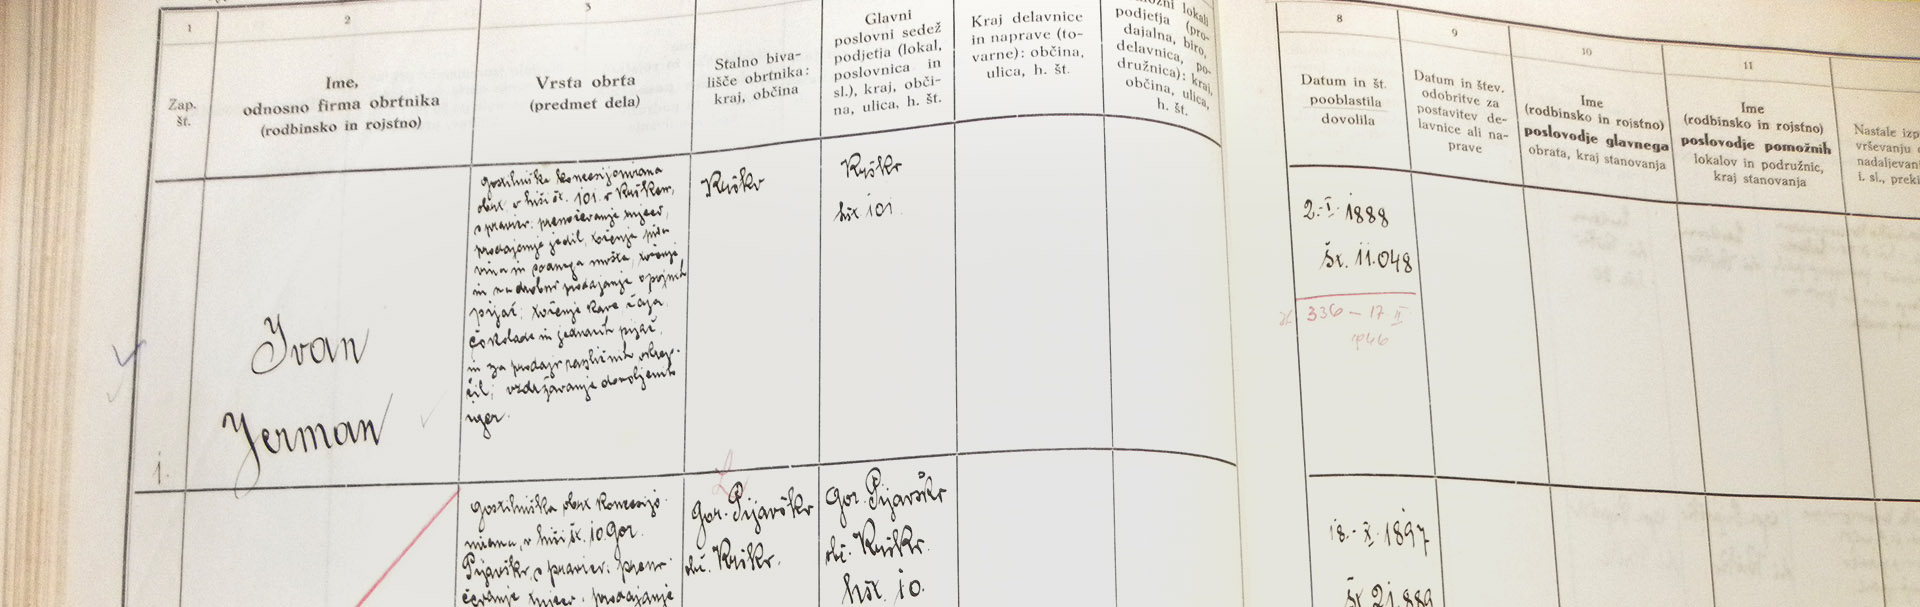 1
2
3
8
9
10
11
Zap.
št.
Ime,
odnosno firma obrtnika
(rodbinsko in rojstno)
Vrsta obrta
(predmet dela)
Stalno biva-
lišče obrtnika:
kraj, občina
Glavni
poslovni sedež
podjetja (lokal,
poslovnica in
sl.), kraj, obči-
na, ulica, h. št.
Kraj delavnice
in naprave (to-
varne): občina,
ulica, h. št.
lokali
podjetja (pro-
dajalna, biro,
delavnica, po-
družnica): kraj,
občina, ulica,
h. št.
Datum in št.
pooblastila
dovolila
Datum in štev.
odobritve za
postavitev de-
lavnice ali na-
prave
Ime
(rodbinsko in rojstno)
poslovodje glavnega
obrata, kraj stanovanja
Ime
(rodbinsko in rojstno)
poslovodje pomožnih
lokalov in podružnic,
kraj stanovanja
Nastale izp
vrševanju
nadaljevan
i. sl., preki
1.
Ivan
Jerman
obrt v hiši št. 101 v
prodajanje jedil, točenje piva
vina in sadnega mošta, točenje
in na drobno prodajanje opojnih
pijač; točenje kave čaja
čokolade in
in za prodajo različnih okrep-
čil; vzdrževanje dovoljenih
iger.
hšt. 101
2.-I.-1888
Št. 11.048
336 - 17 II
1946
Gostilniška obrt koncesijo-
nirana, v hiši št. 10 Gor.
prodajanje
Gor.
obč.
Gor.
obč.
hšt. 10.
18.-X.-1897
Št 21.889